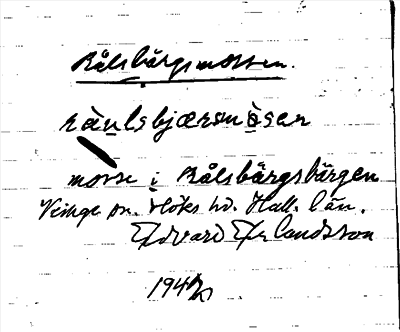 Rålsbärgsmossen.
ràulsbjærsmòsen
mosse i Rålsbärgsbärgen
Veinge sn. Höks hd. Hall. län.
Edvard Erlandsson